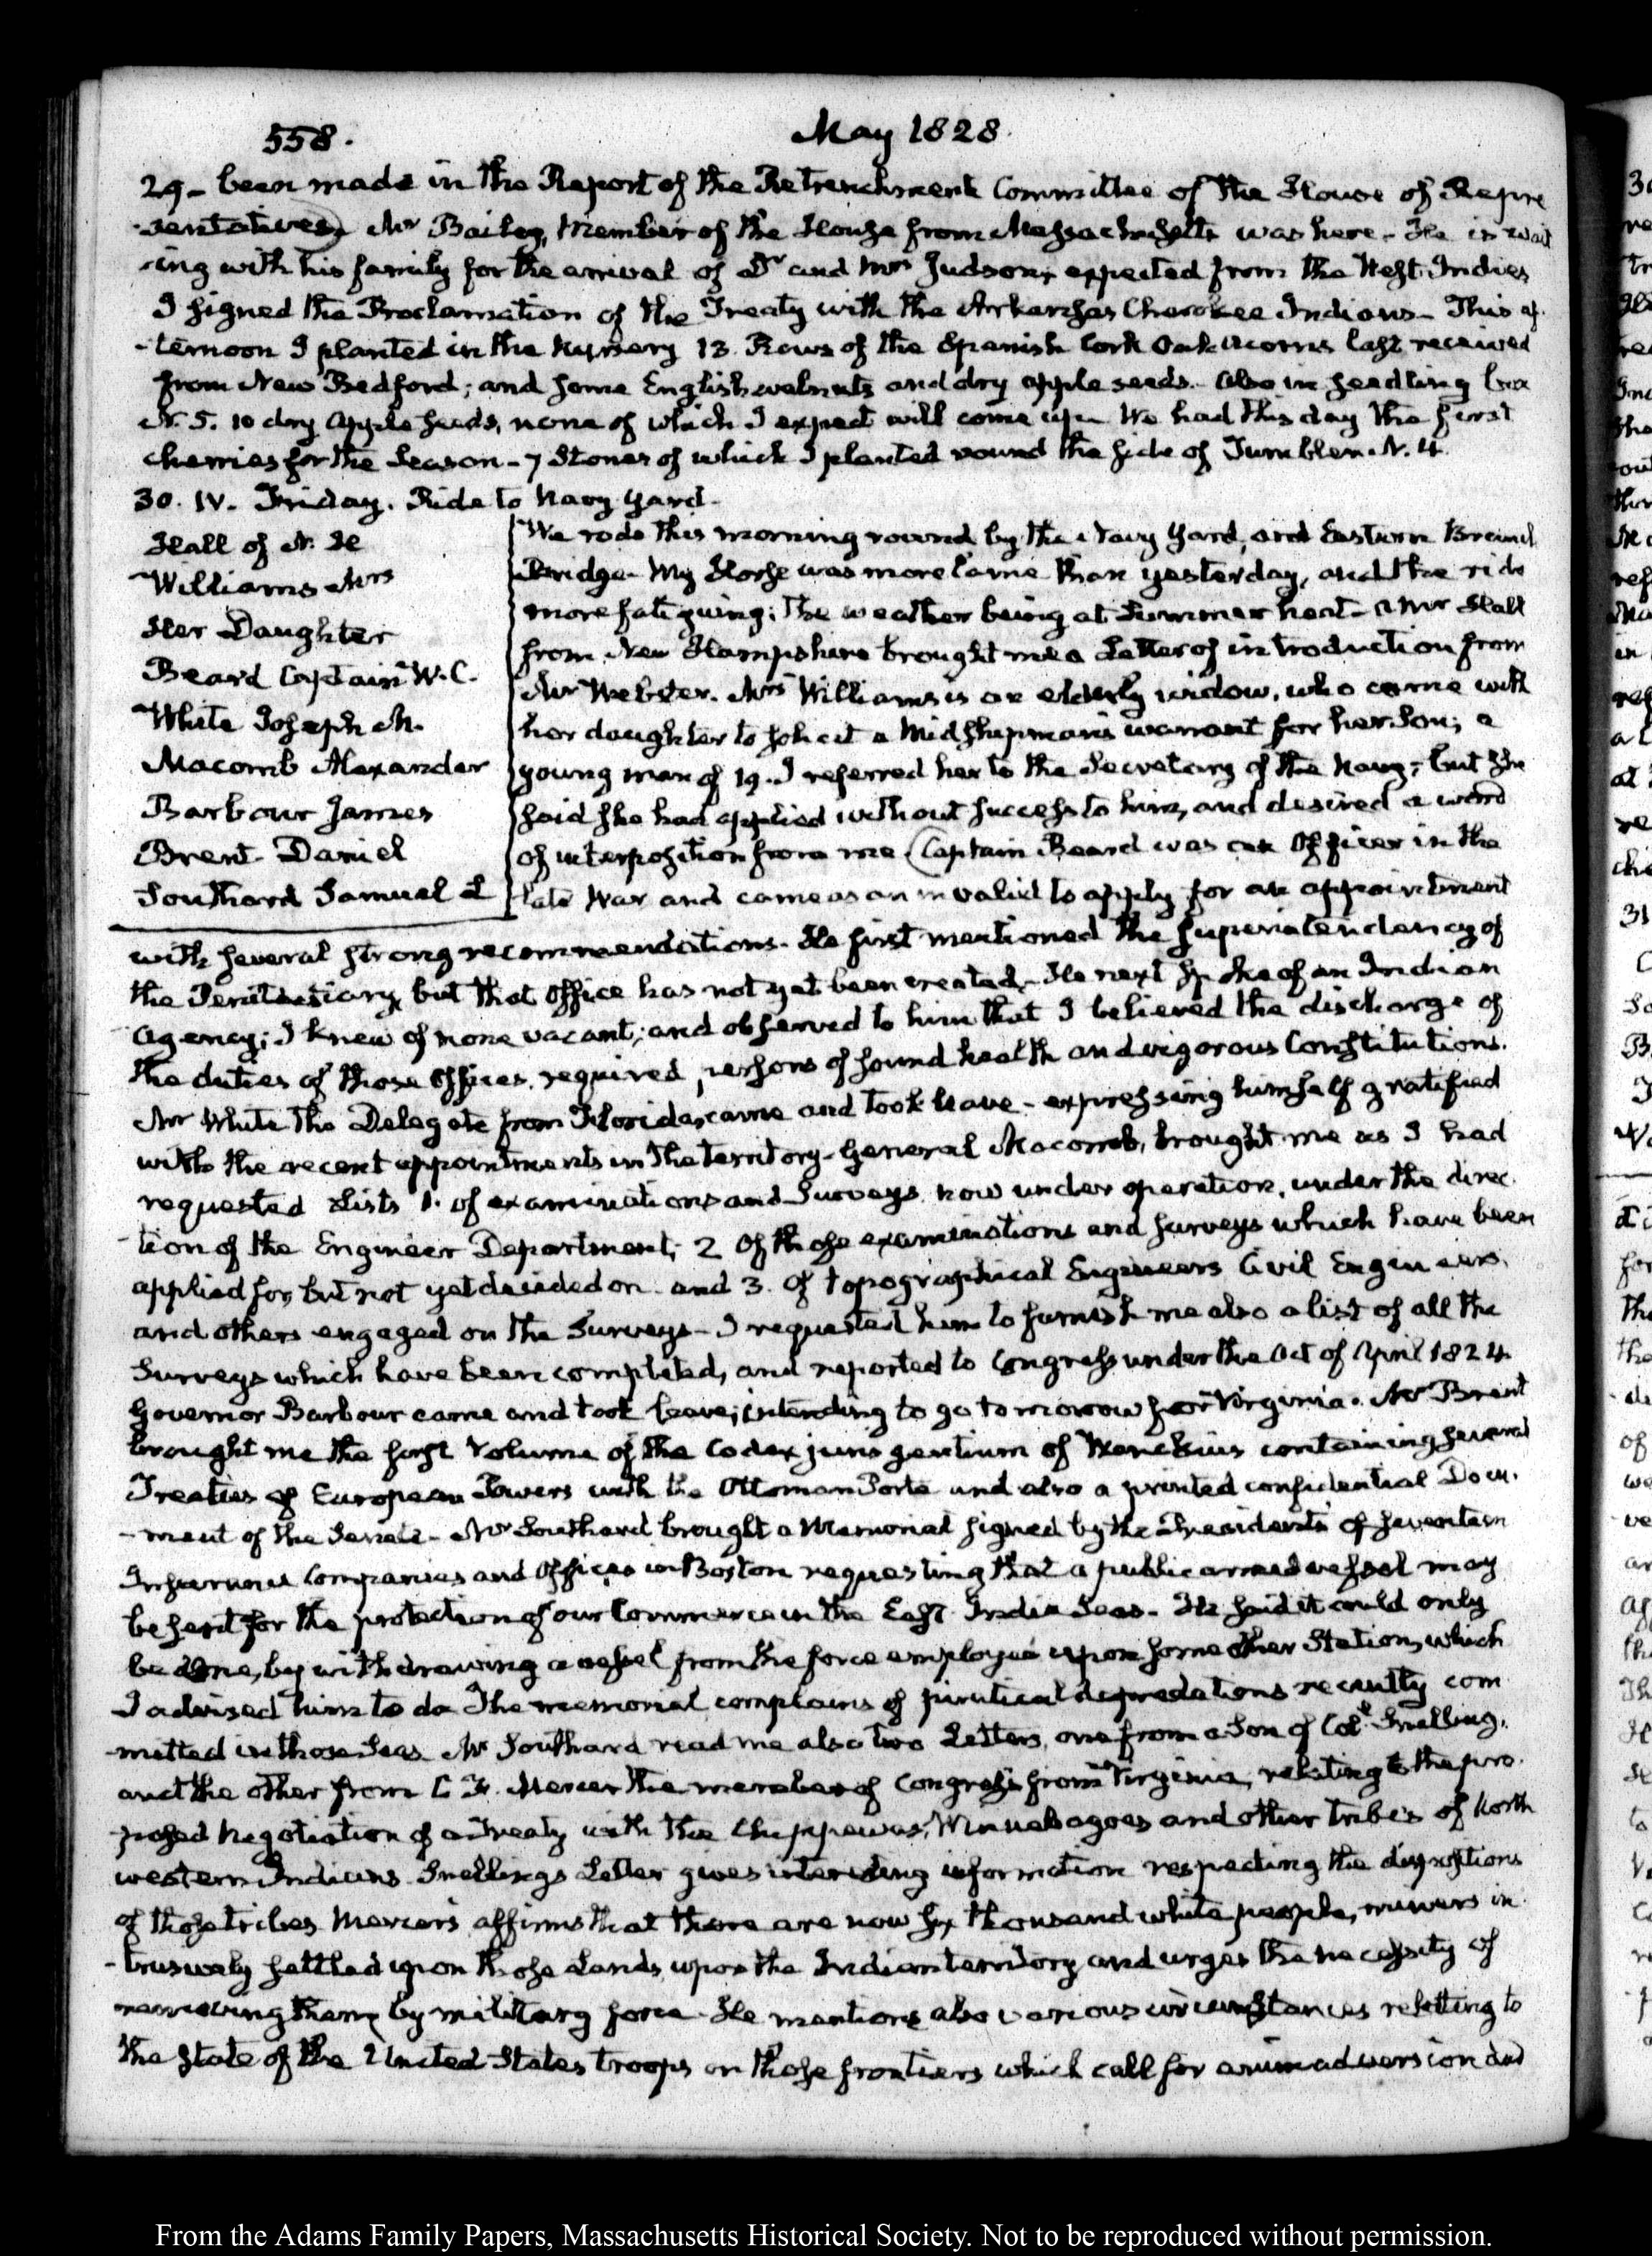 558.
May 1828.
29- been made in the Report of the Retrenchment Committee of the House of Repre
-sentatives) Mr Bailey, Member of the House from Massachusetts was here- He is wait
-ing with his family for the arrival of Dr and Mrs Judson, expected from the West-Indies
I signed the Proclamation of the Treaty with the Arkansas Cherokee Indians- This af-
-ternoon I planted in the Nursery 13 Rows of the Spanish Cork Oak acorns last received
from New Bedford; and some English walnuts and dry apple seeds- also in seedling box
N. 5. 10 dry Apple seeds, none of which I expect will come up- We had this day the first
cherries for the Season- 7 Stones of which I planted round the side of Tumbler. N. 4.
30. IV. Friday. Ride to Navy Yard-
Hall of N. H
Williams Mrs
Her Daughter
Beard Captain W. C.
White Joseph M.
Macomb Alexander
Barbour James
Brent- Daniel
Southard Samuel L
We rode this morning round by the Navy Yard, and Eastern Branch
Bridge- My Horse was more lame than yesterday, and the ride
more fatiguing; the weather being at Summer heat- a Mr Hall
from New Hampshire brought me a Letter of introduction from
Mr Webster. Mrs Williams is an elderly widow, who came with
her daughter to solicit a Midshipman's warrant for her Son; a
young man of 19- I referred her to the Secretary of the Navy; but she
said she had applied without success to him, and desired a word
of interposition from me (Captain Beard was an Officer in the
late War and came as an invalid to apply for an appointment
with several strong recommendations- He first mentioned the Superintendency of
the Penitentiary, but that Office has not yet been created- He next spoke of an Indian
Agency; I knew of none vacant; and observed to him that I believed the discharge of
the duties of those Offices required, persons of sound health and vigorous Constitutions.
Mr White the Delegate from Florida, came and took leave- expressing himself gratified
with the recent appointments in the territory- General Macomb, brought me as I had
requested Lists 1. of examinations and Surveys now under operation, under the direc-
-tion of the Engineer Department; 2 Of those examinations and surveys which have been
applied for, but not yet decided on and 3. Of topographical Engineers Civil Engineers,
and others engaged on the Surveys- I requested him to furnish me also a list of all the
Surveys which have been completed, and reported to Congress under the Act of April 1824
Governor Barbour came and took leave; intending to go tomorrow for Virginia. Mr Brent
brought me the first Volume of the Codex juris gentium of Wenckius containing several
Treaties of European Powers with the Ottoman Porte and also a printed confidential Docu-
-ment of the Senate- Mr Southard brought a Memorial signed by the Presidents of seventeen
Insurance Companies and Offices in Boston requesting that a public armed vessel may
be sent for the protection of our Commerce in the East India Seas- He said it could only
be done, by withdrawing a vessel from the force employed upon some other Station, which
I advised him to do The memorial complains of piratical depredations recently com
-mitted in those Seas Mr Southard read me also two Letters, one from a Son of Coll Snelling,
and the other from C F. Mercer the member of Congress from Virginia, relating to the pro-
-posed Negotiation of a Treaty with the Chippewas, Winnebagoes and other tribes of North
western Indians Snellings Letter gives interesting information respecting the dispositions
of those tribes Mercer's affirms that there are now six thousand white people, miners in
-trusively settled upon those Lands upon the Indian territory and urges the necessity of
removing them by military force- He mentions also various circumstances relating to
the State of the United States troops on those frontiers which call for animadversion and
From the Adams Family Papers, Massachusetts Historical Society. Not to be reproduced without permission.